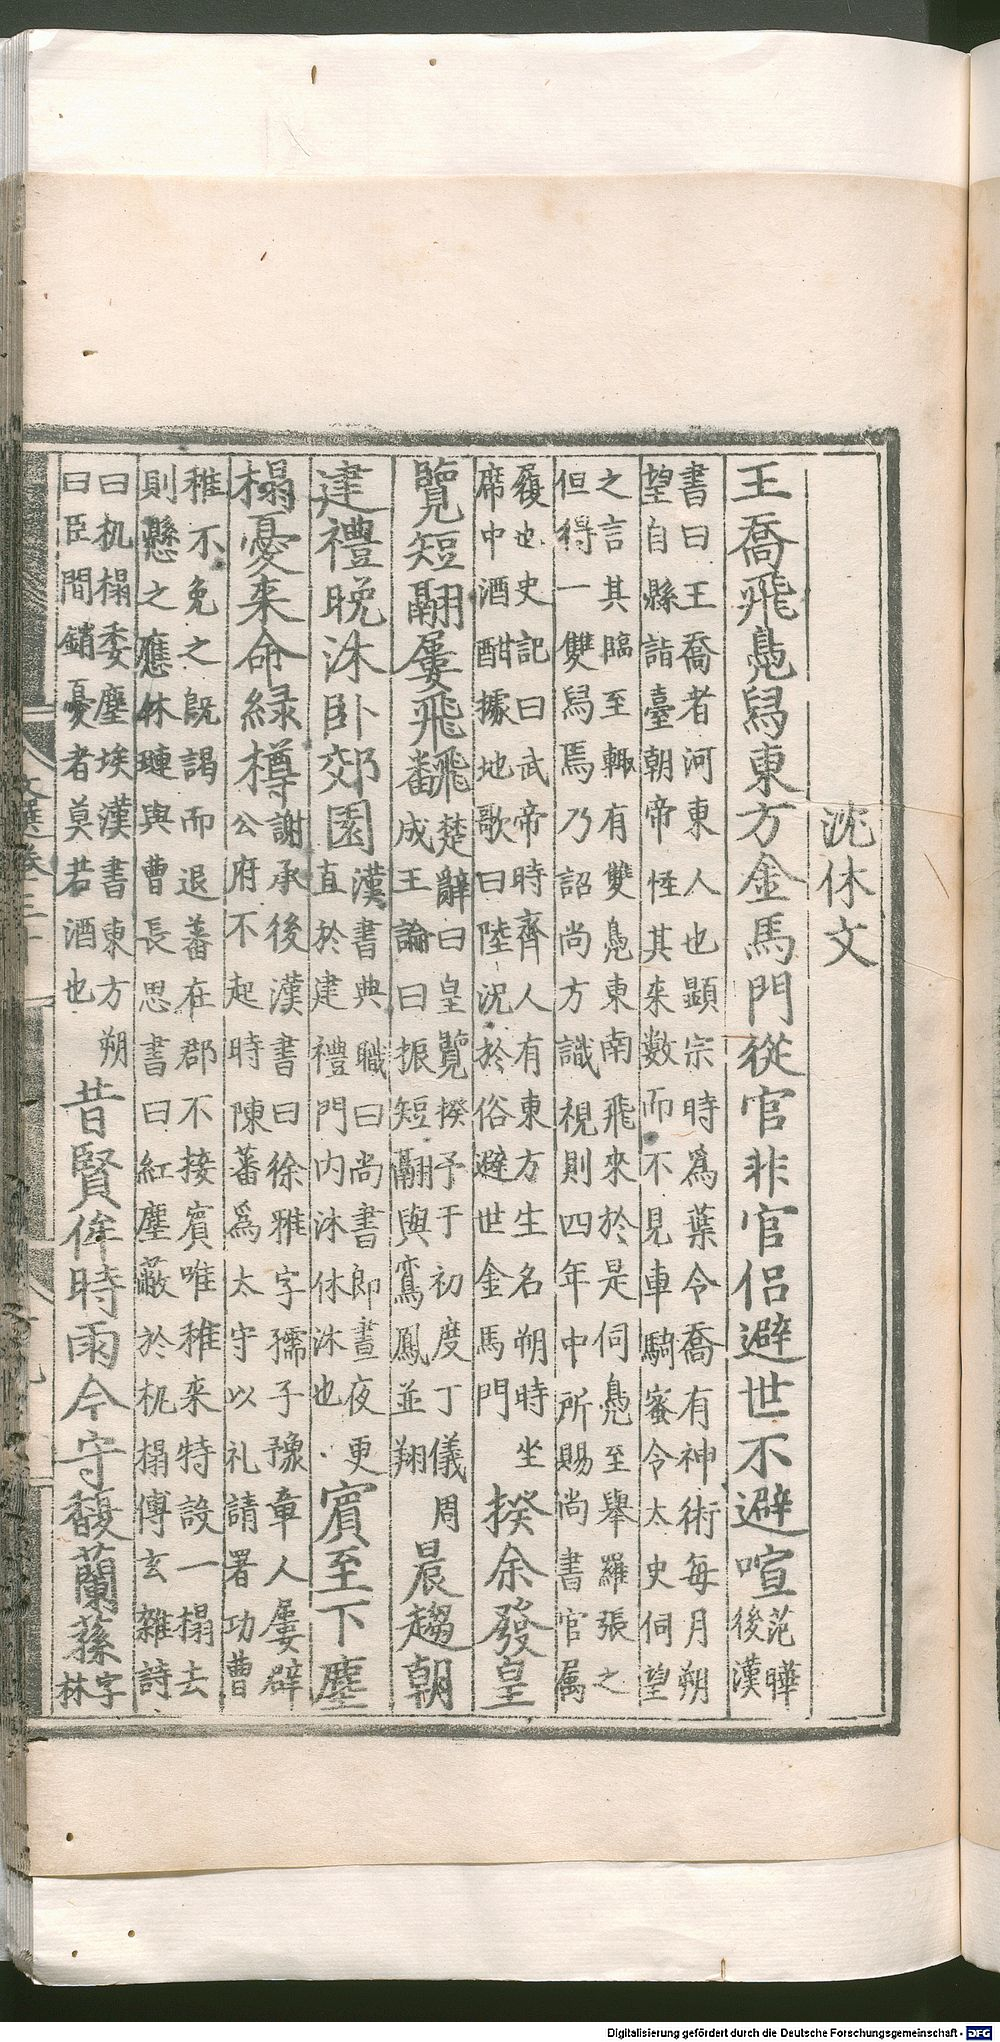 沈休文
王喬飛鳧舄東方金馬門從官非官侶避世不避喧范曄
後漢
書曰王喬者河東人也顯宗時爲葉令喬有神術每月朔
望自縣詣臺朝帝怪其来數而不見車騎蜜令太史伺望
之言其臨至輙有雙鳧東南飛來於是伺鳧至舉羅張之
但得一雙舄焉乃詔尚方識視則四年中所賜尚書官属
履也史記曰武帝時齊人有東方生名朔時坐
席中酒酣據地歌曰陸沉於俗避世金馬門
揆余發皇
覽短翮屢飛飜楚辭曰皇覽揆予于初度丁儀周
成王論曰振短翮與鸞鳳並翔
晨趨朝
建禮晚沐卧郊園漢書典職曰尚書郎晝夜更
直於建禮門内沐休沐也
賓至下塵
榻憂来命緑樽謝承後漢書曰徐雅字孺子豫章人屢辟
公府不起時陳蕃爲太守以礼請署功曹
稚不免之既謁而退蕃在郡不接賓唯稚来特設一榻去
則懸之應休璉與曹長思書曰紅塵蔽於机榻傅玄雜詩
曰机榻委塵埃漢書東方朔
曰臣聞銷憂者莫若酒也
昔賢侔時雨今守馥蘭蓀字
林
文選卷三十
Digitalisierung gefördert durch die Deutsche Forschungsgemeinschaft - DFG